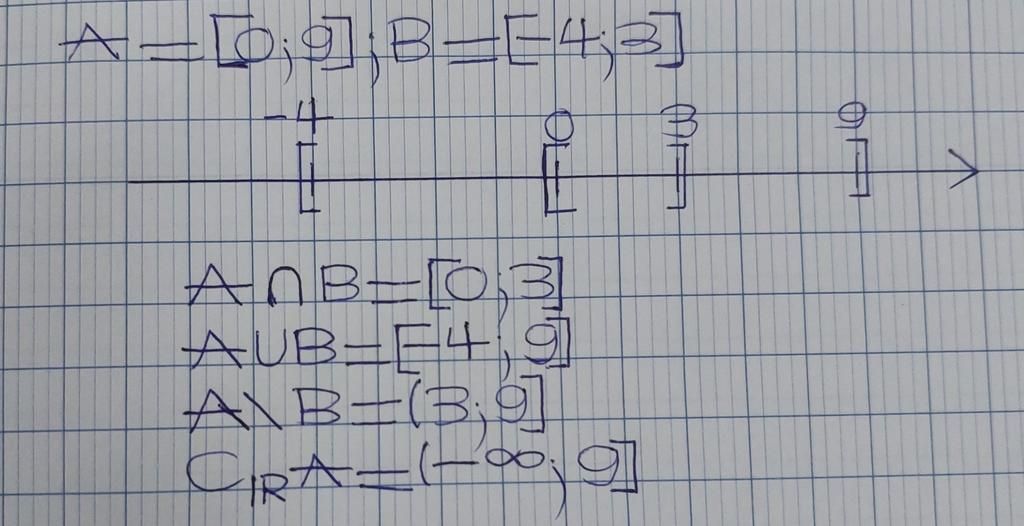 A = [0;9];B = [-4;3]
-4 0 3 9
[ [ ] ]
A∩B=[0;3]
A∪B=[-4;9]
A\B=(3;9]
CℝA=(-∞;9]